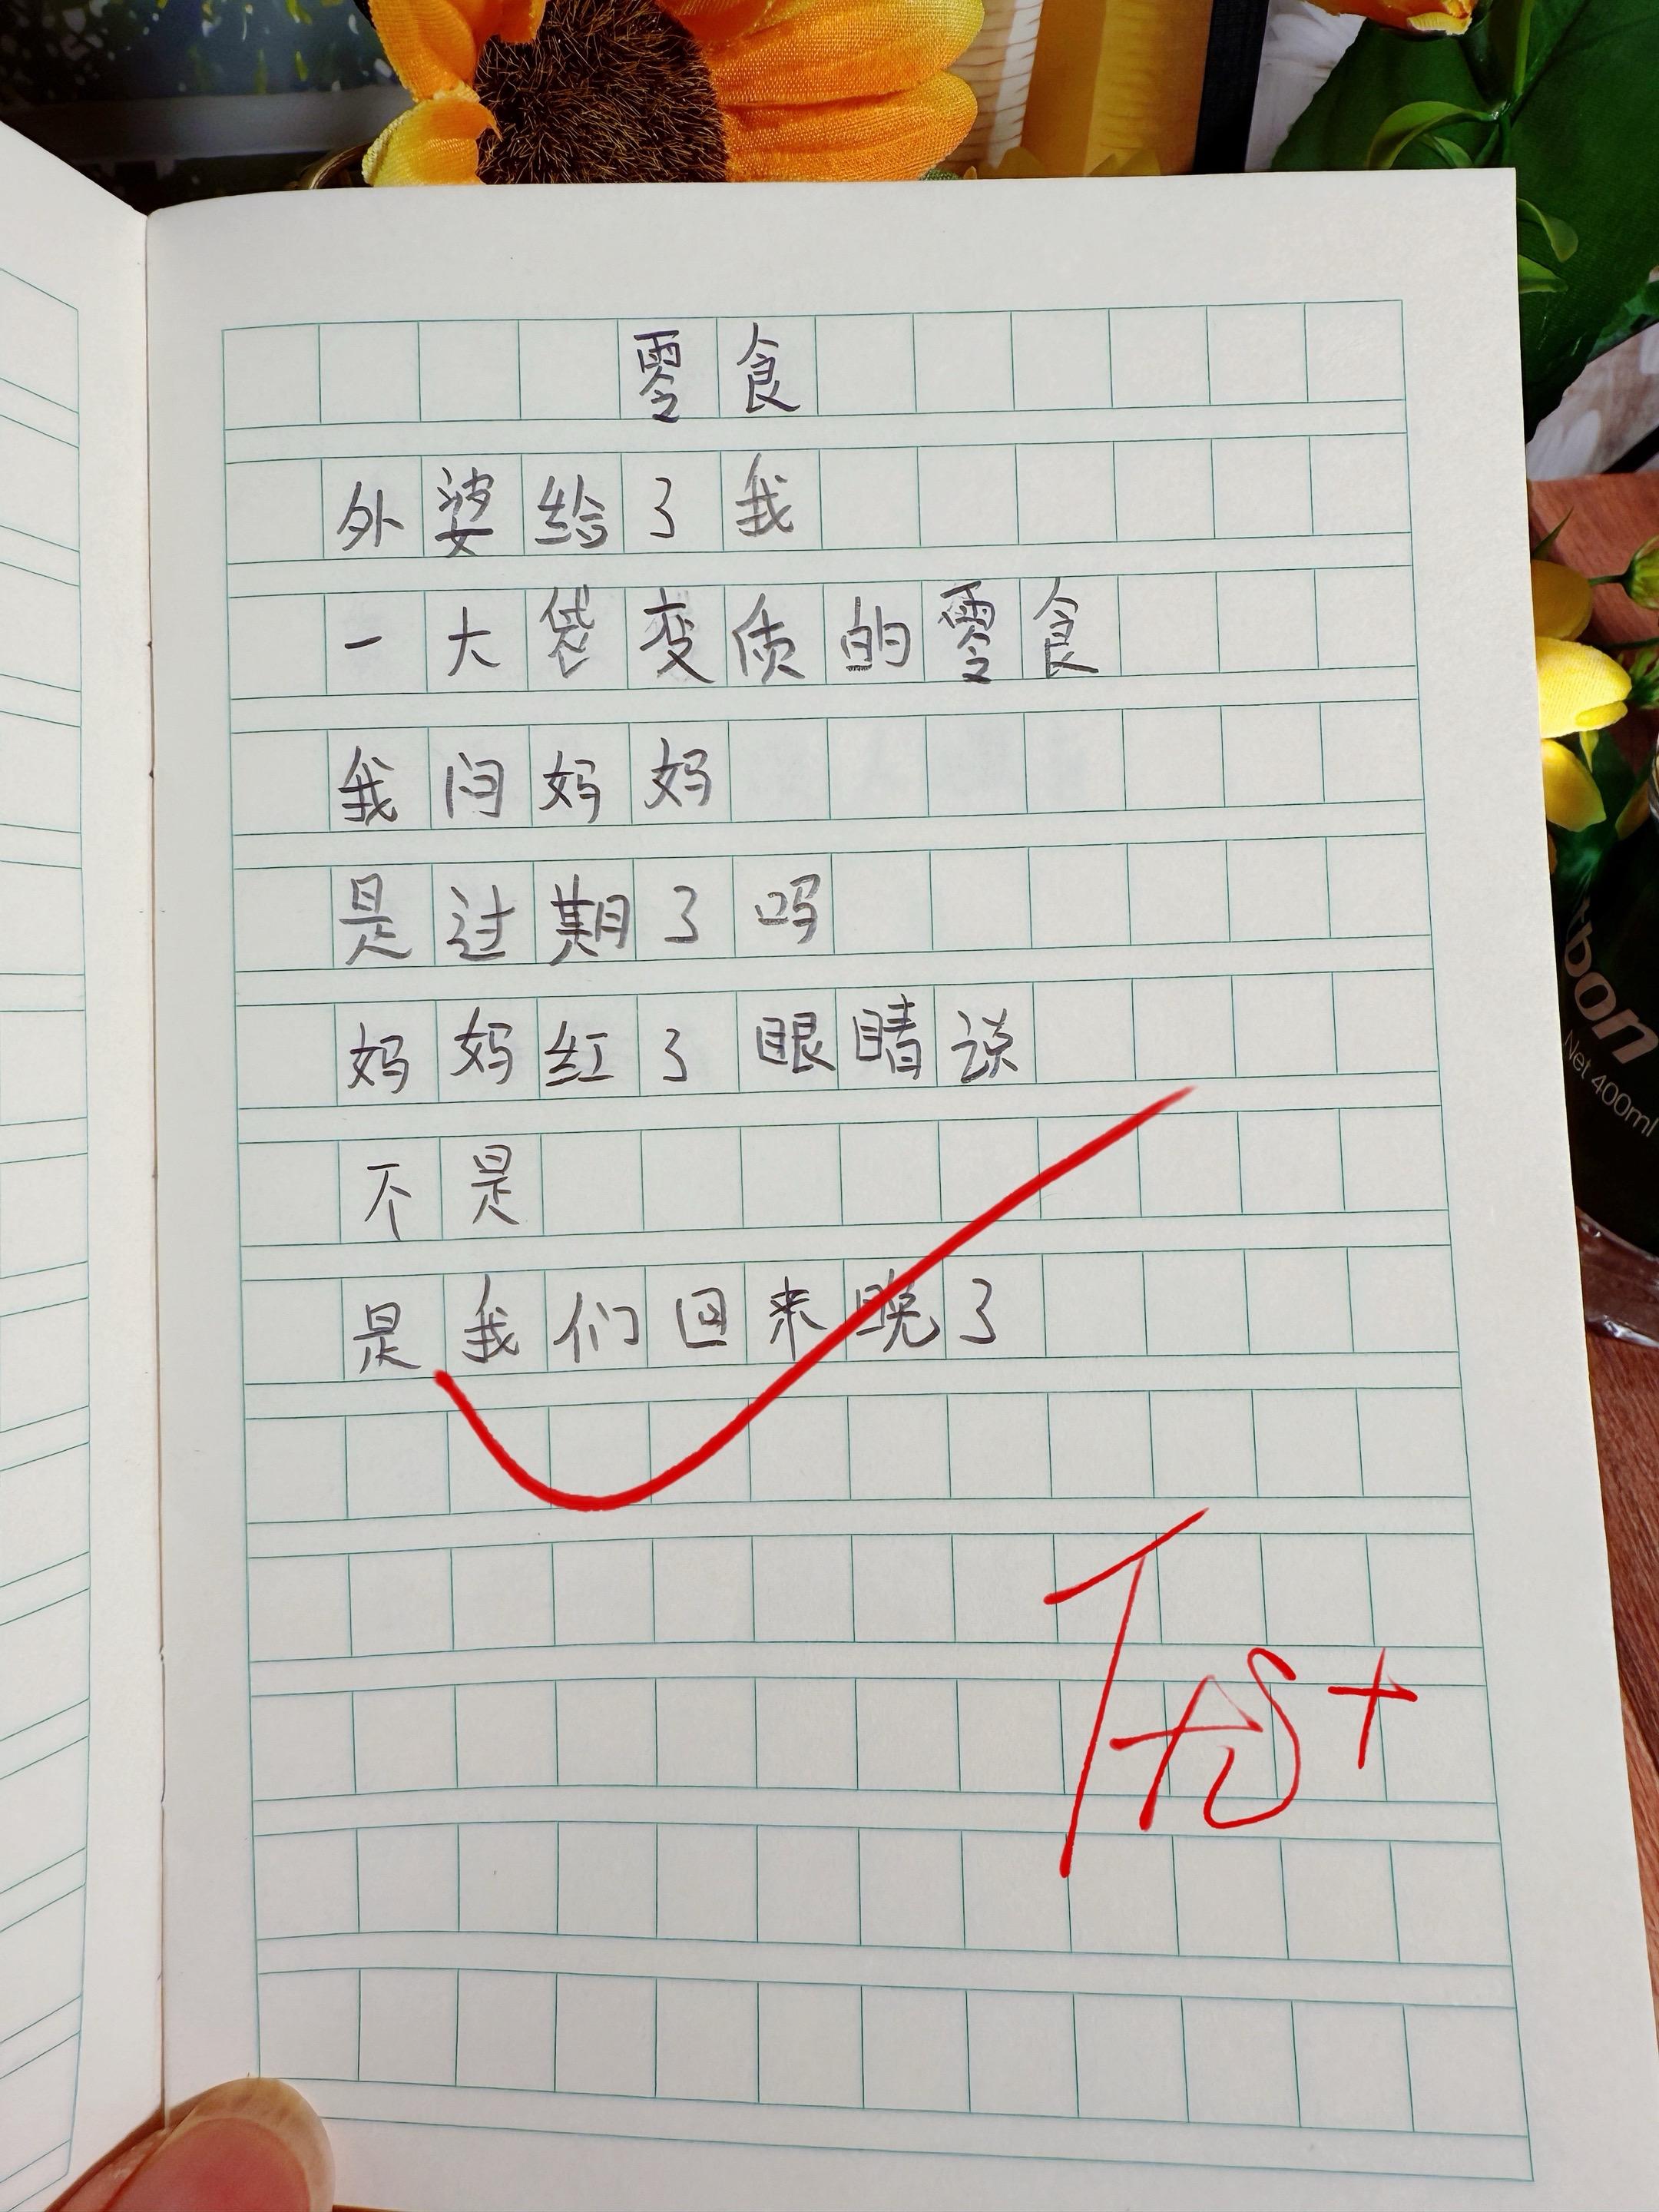 零食
外婆给了我
一大袋变质的零食
我问妈妈
是过期了吗
妈妈红了眼睛说
不是
是我们回来晚了
tbon
Net 400ml